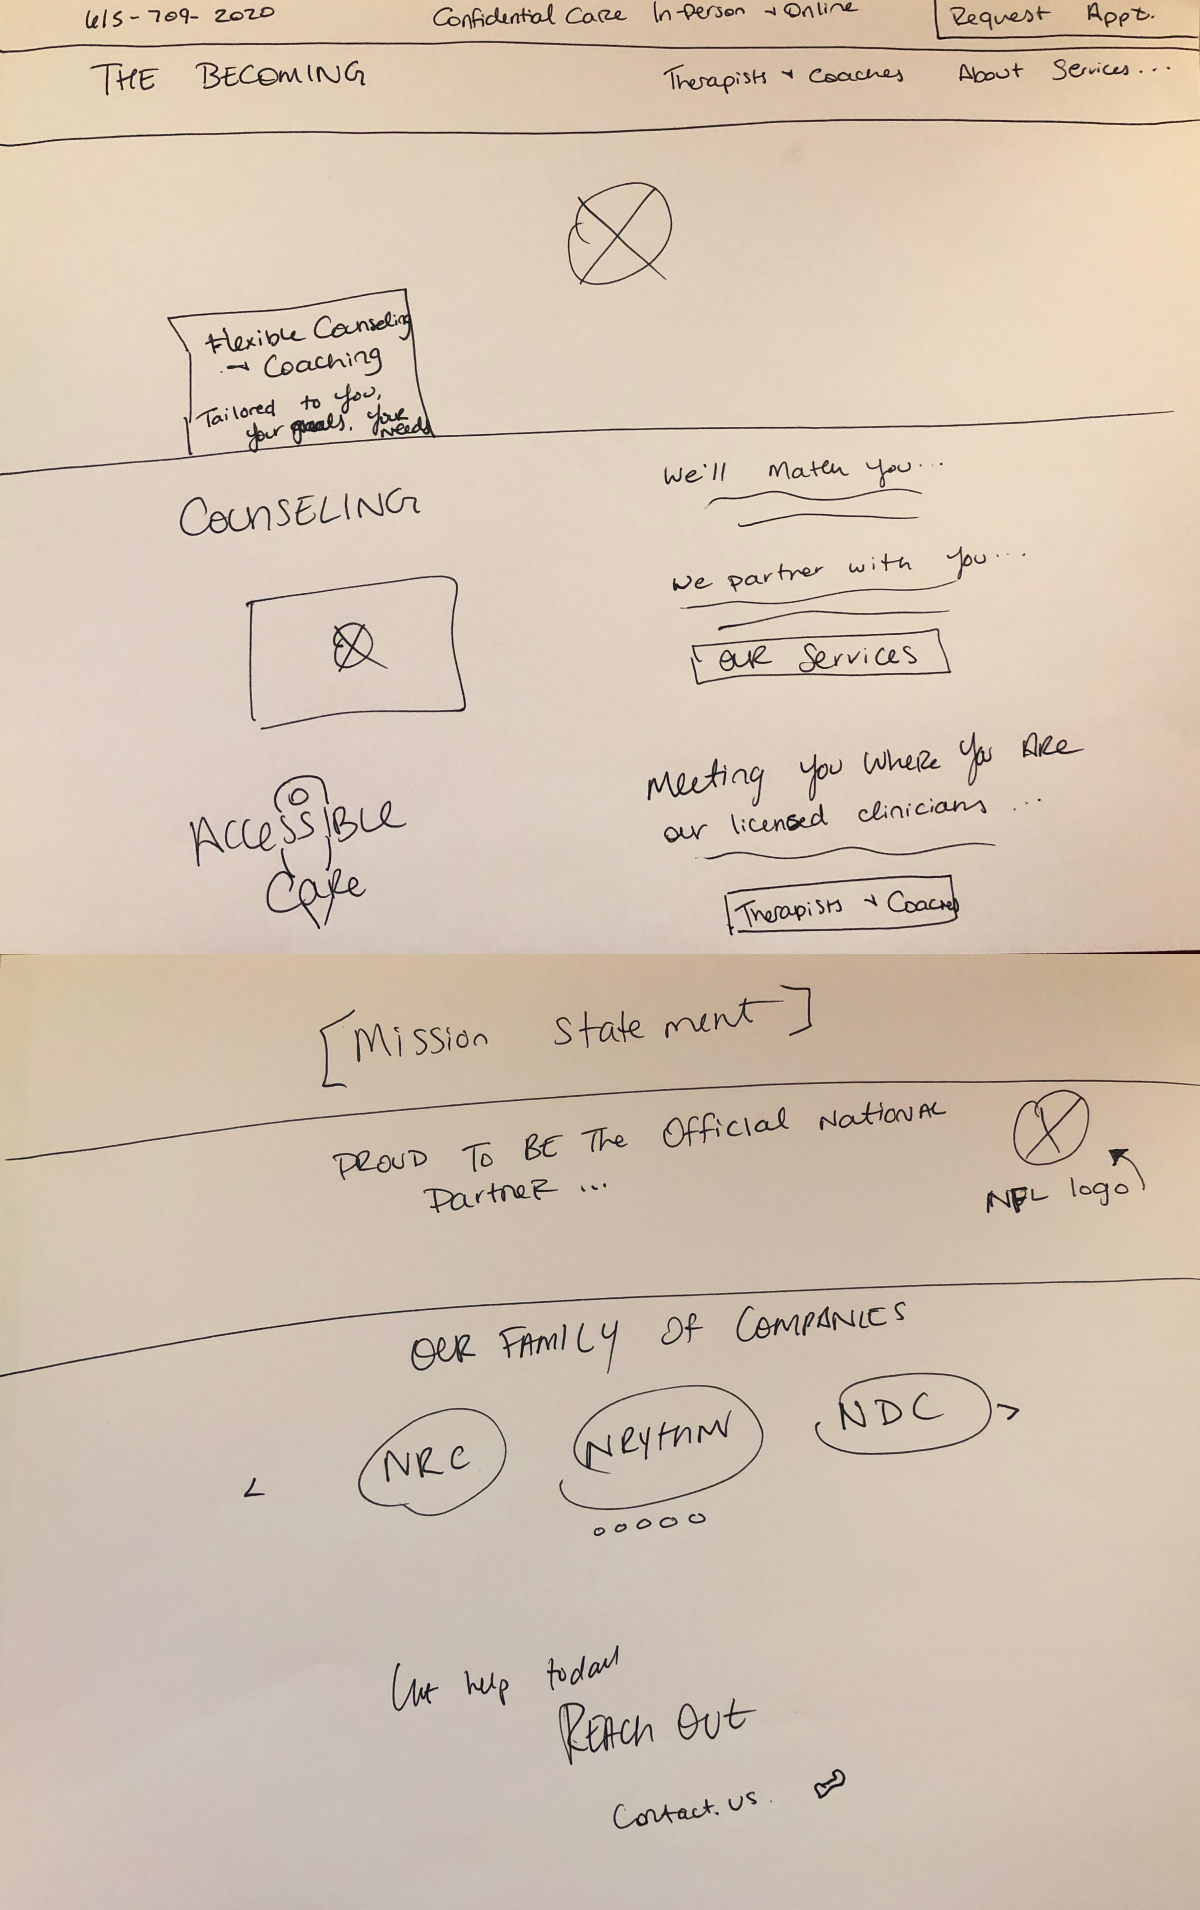 615-709-2020 Confidential Care In-Person + Online Request Appt.
THE BECOMING Therapists + Coaches About Services...
Flexible Counseling
+ Coaching
Tailored to you,
your goals, your
needs
COUNSELING
We'll Match you...
We partner with you...
OUR Services
ACCESSIBLE
Care
Meeting you where you ARE
our licensed clinicians ...
Therapists + Coaches
[Mission Statement]
PROUD TO BE The Official NATIONAL
PartneR ...
NFL logo
OUR FAMILY OF COMPANIES
< NRC NRYTHM NDC >
Get help today
REACH OUT
Contact. us.